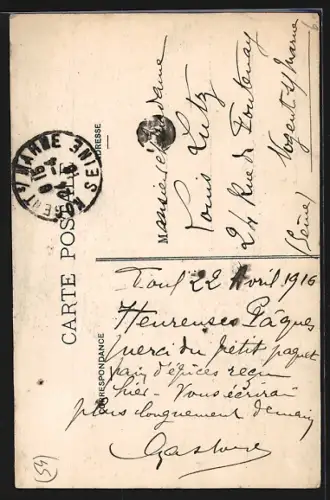 CARTE POSTALE
CORRESPONDANCE
ADRESSE
Monsieur et Madame
Louis Lutz
24 Rue de Fontenay
Nogent s/ Marne
(Seine)
Toul 22 Avril 1916
Heureuses Pâques
merci du petit paquet
pain d'épices reçu
hier - Vous écrirai
plus longuement demain
Gaston
NOGENT S MARNE SEINE
(54)